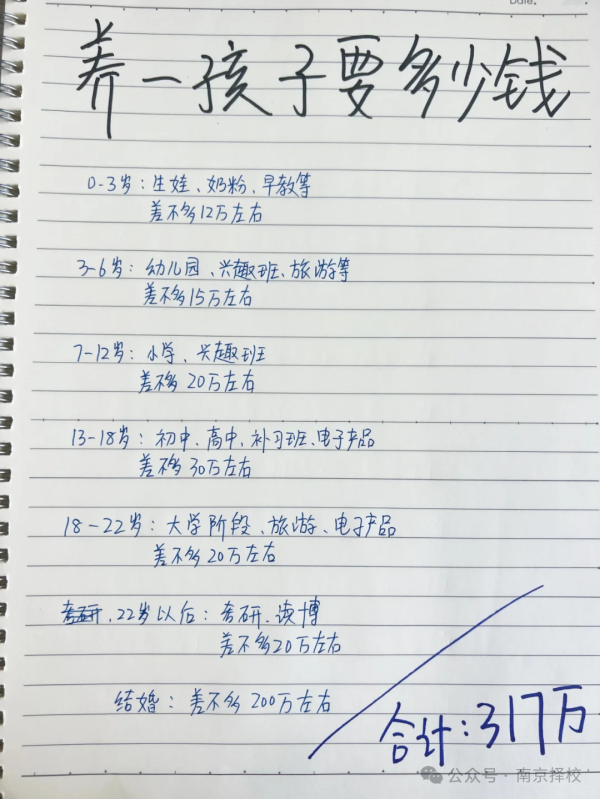 Date.
养一孩子要多少钱
0-3岁：生娃、奶粉、早教等
差不多12万左右
3-6岁：幼儿园、兴趣班、旅游等
差不多15万左右
7-12岁：小学、兴趣班
差不多 20万左右
13-18岁：初中、高中、补习班、电子产品
差不多 30万左右
18-22岁：大学阶段、旅游、电子产品
差不多 20万左右
考研、22岁以后：考研、读博
差不多20万左右
结婚：差不多 200万左右
合计：317万
公众号·南京择校